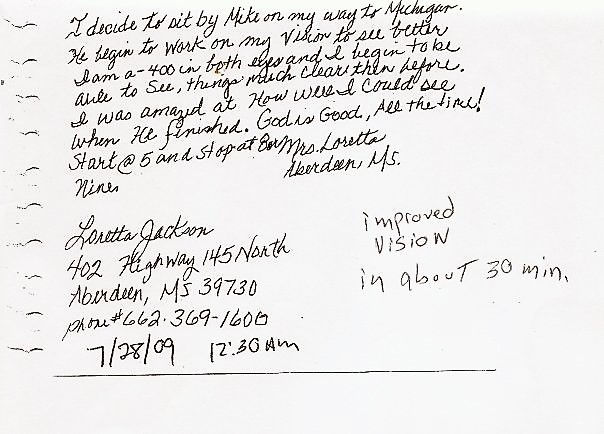 I decide to sit by Mike on my way to Michigan.
He begin to work on my Vision to see better
I am a -400 in both eyes and I begin to be
able to See, things much clear then before.
I was amazed at How well I could see
when He finished. God is Good, All the time!
Start @ 5 and stop at 8 or Mrs. Loretta
Nines Aberdeen, Ms.
Loretta Jackson
402 Highway 145 North
Aberdeen, MS 39730
phone# 662-369-1600
7/28/09 12:30 Am
improved
Vision
in about 30 min.